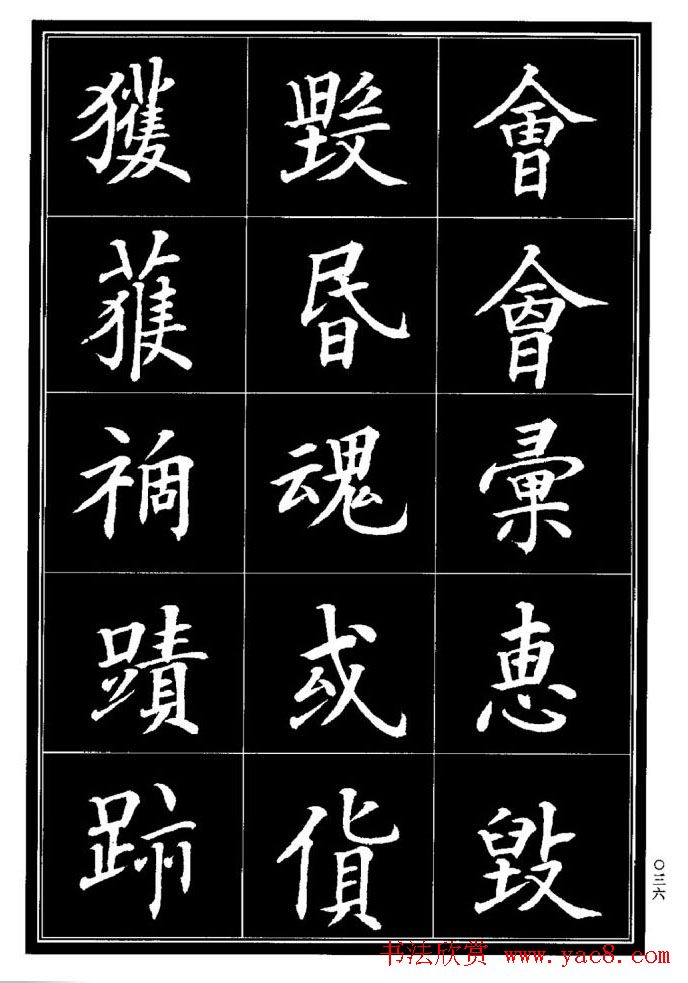 會會彚恵毀
毀昬魂或貨
獲獲禍蹟跡
〇三六
书法欣赏 www.yac8.com